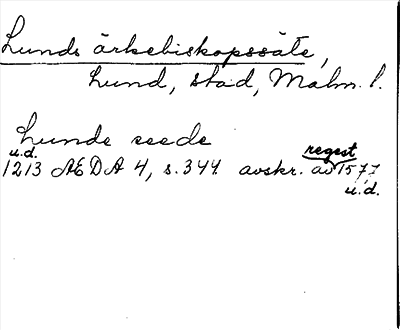 Lunds ärkebiskopssäte,
Lund, stad, Malm. l.
Lunde seede
u.d.
1213 AEDA 4, s. 344. avskr. av regest 1577
u.d.